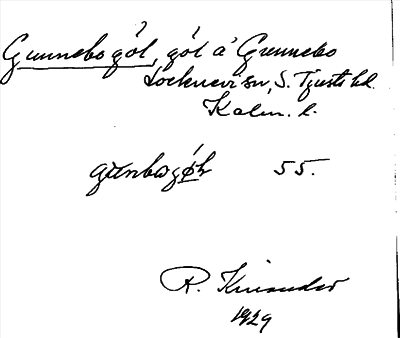 Gunnebo göl, göl å Gunnebo
Locknevi sn, S. Tjusts hd.
Kalm. l.
gunbogøh 55.
R. Kinander
1929